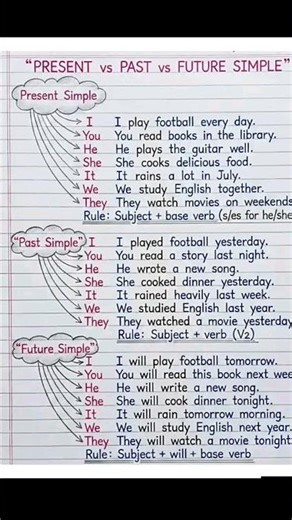 “PRESENT vs PAST vs FUTURE SIMPLE”
Present Simple
I I play football every day.
You You read books in the library.
He He plays the guitar well.
She She cooks delicious food.
It It rains a lot in July.
We We study English together.
They They watch movies on weekends
Rule: Subject + base verb (s/es for he/she
“Past Simple” I I played football yesterday.
You You read a story last night.
He He wrote a new song.
She She cooked dinner yesterday.
It It rained heavily last week.
We We studied English last year.
They They watched a movie yesterday
Rule: Subject + verb (V2)
“Future Simple”
I I will play football tomorrow.
You You will read this book next wee
He He will write a new song.
She She will cook dinner tonight.
It It will rain tomorrow morning.
We We will study English next year.
They They will watch a movie tonight
Rule: Subject + will + base verb